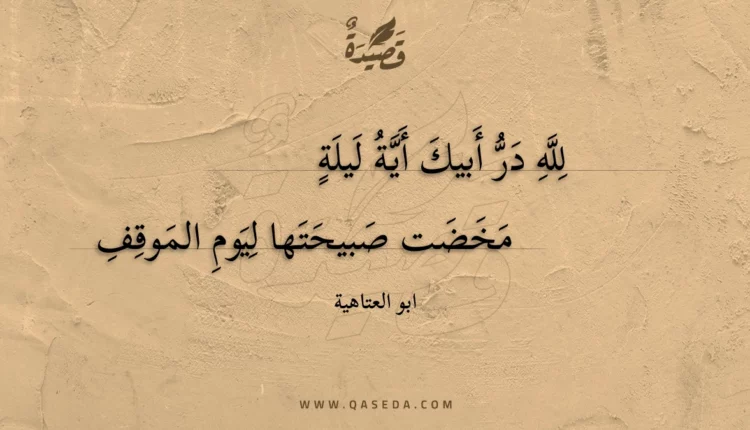 قَصِيْدَةٌ
لِلَّهِ دَرُّ أَبيكَ أَيَّةُ لَيلَةٍ
مَخَضَت صَبيحَتَها لِيَومِ المَوقِفِ
ابو العتاهية
WWW.QASEDA.COM